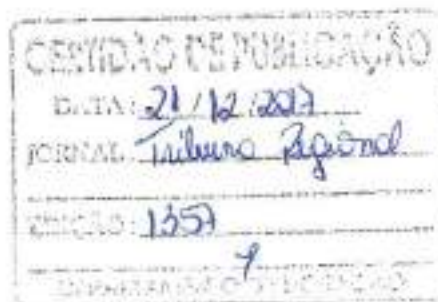 CERTIDÃO DE PUBLICAÇÃO
DATA: 21/12/2017
JORNAL: Tribuna Regional
EDIÇÃO: 1357